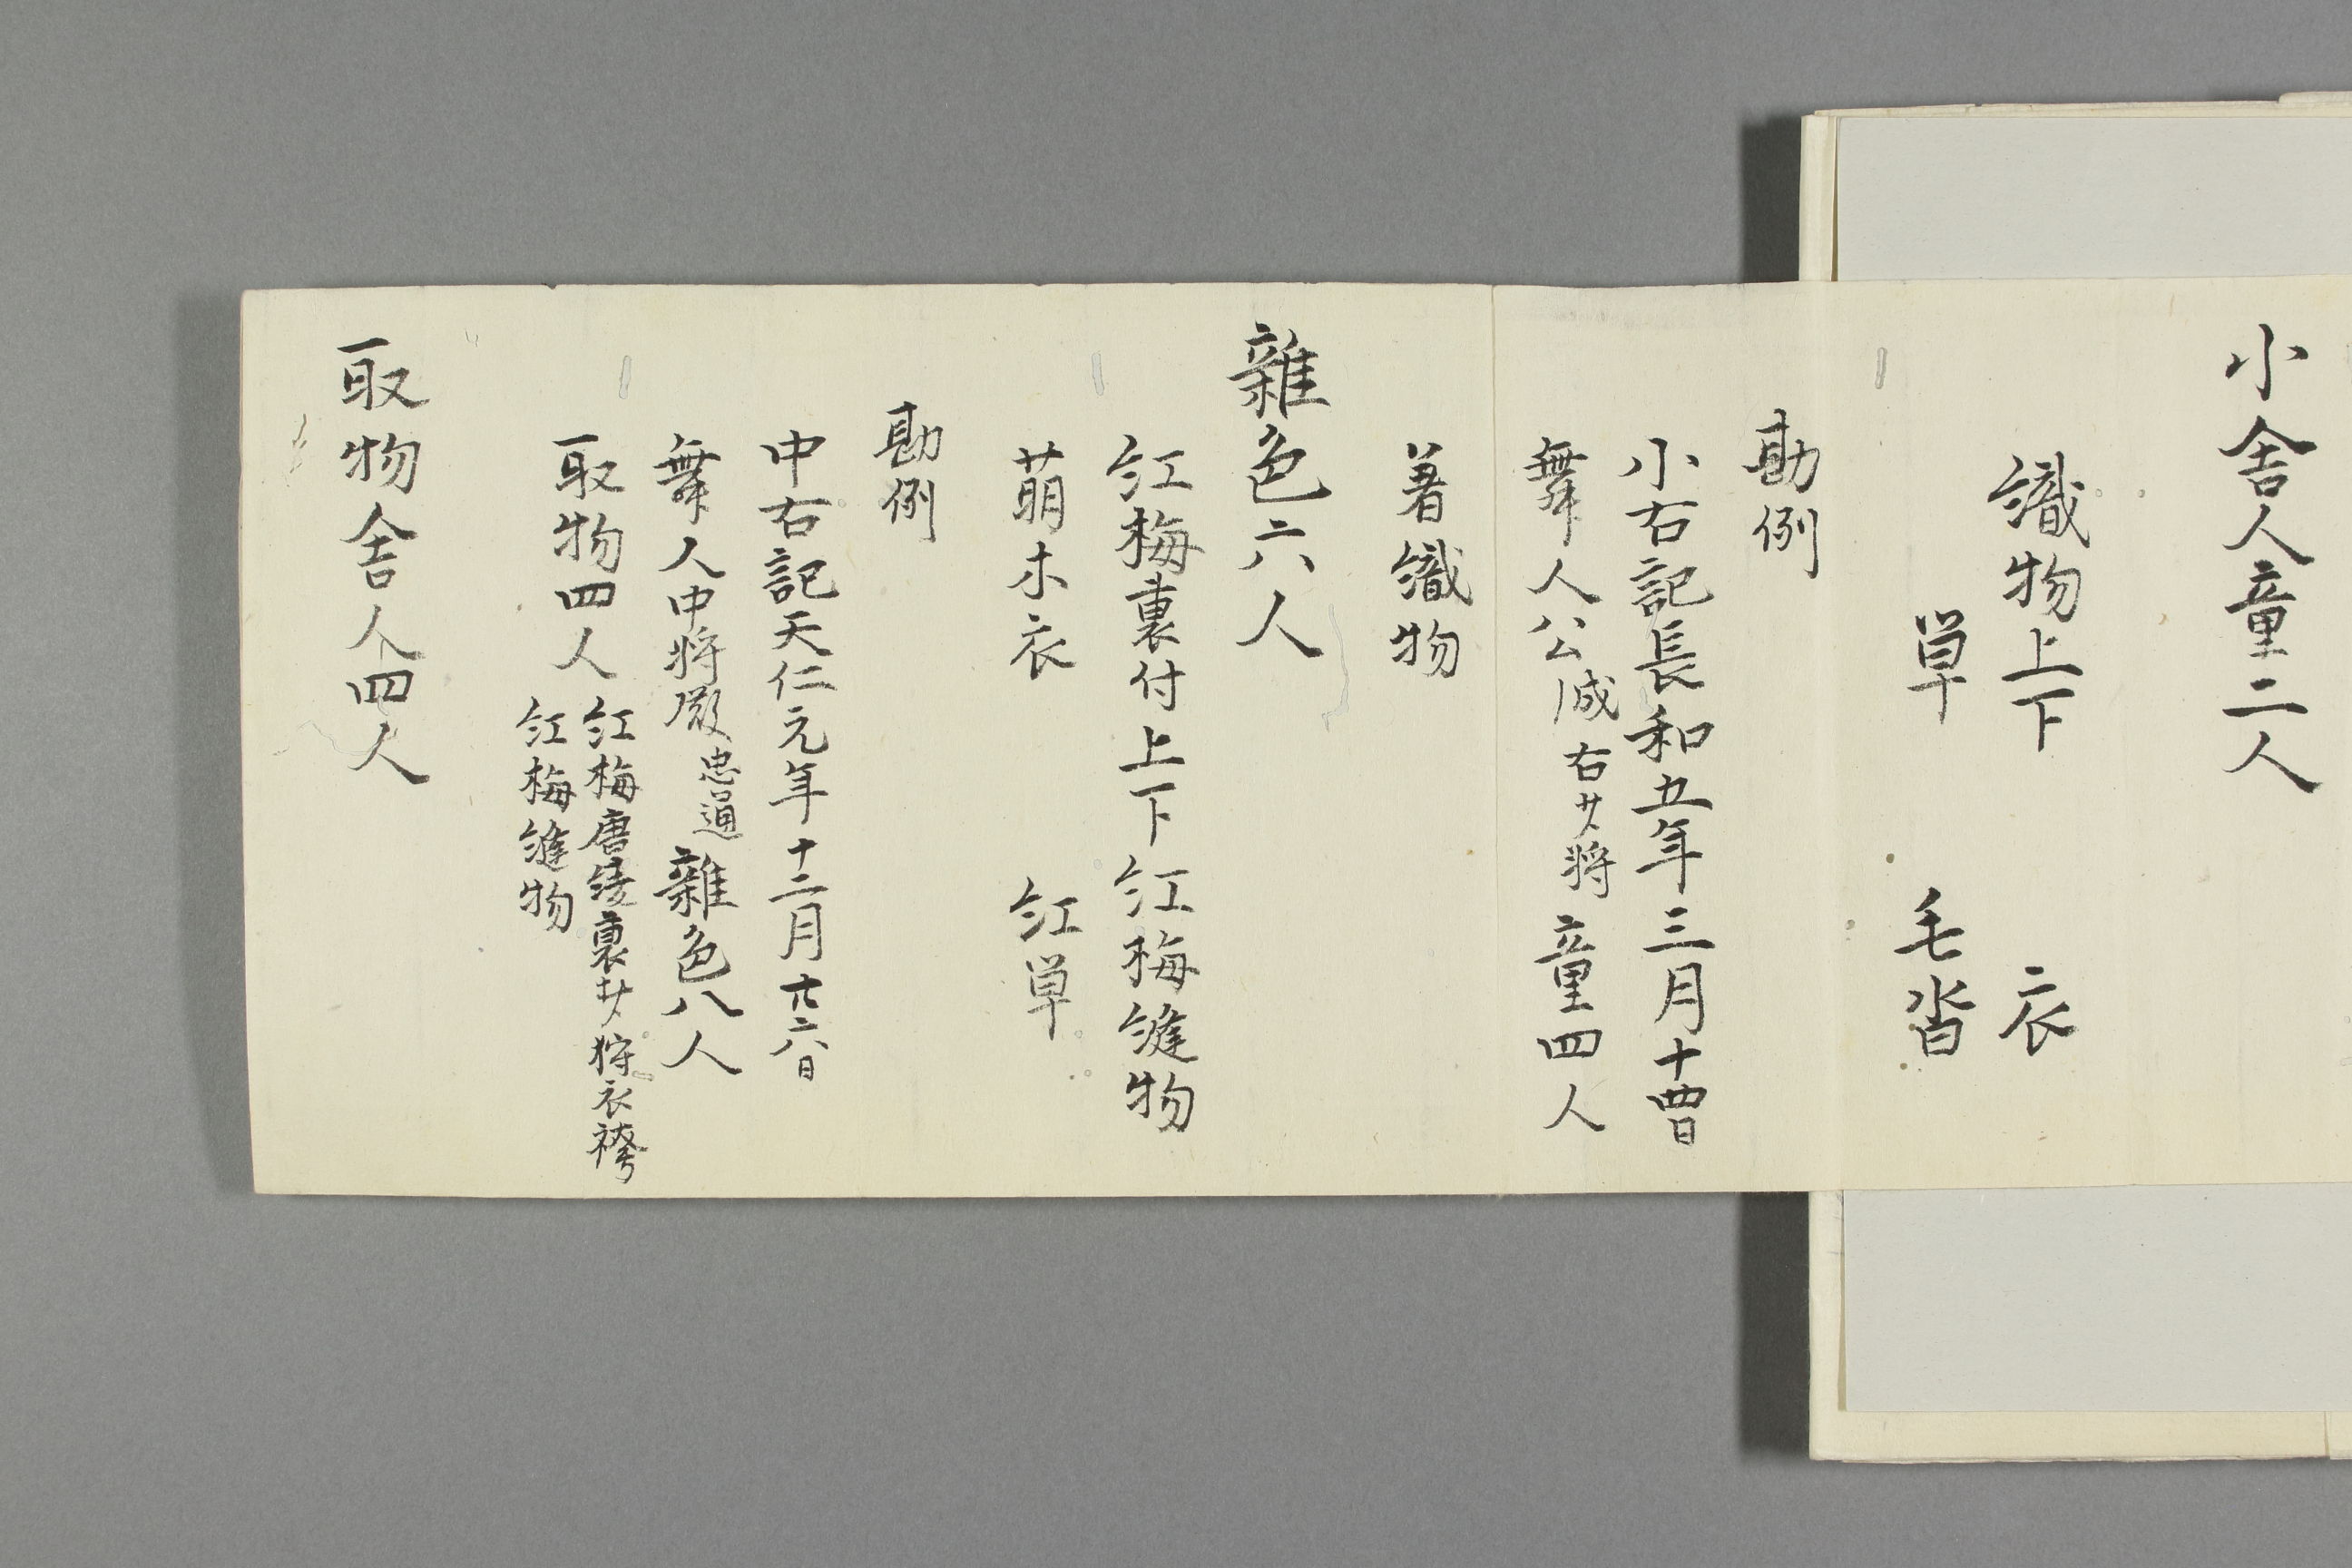 小舎人童二人
織物上下　衣
単　毛沓
勘例
小右記長和五年三月十四日
舞人公成右少将童四人
著織物
雑色六人
紅梅裏付上下紅梅縫物
萌木衣　紅単
勘例
中右記天仁元年十二月十六日
舞人中将殿忠通雑色八人
取物四人
紅梅唐綾裏少狩衣袴
紅梅縫物
取物舎人四人